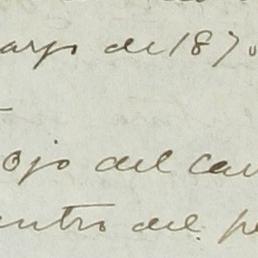 arzo de 1870
ojo del cam
entro del pe